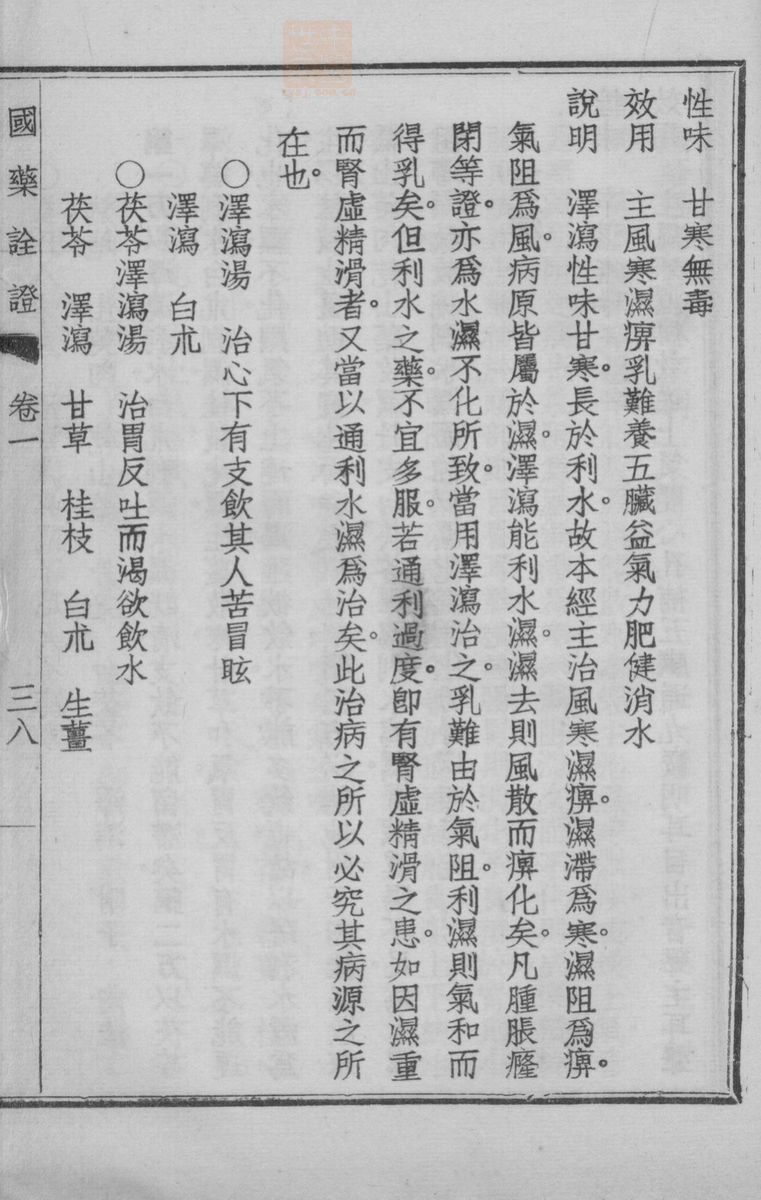 性味　甘寒無毒
效用　主風寒濕痹乳難養五臟益氣力肥健消水
說明　澤瀉性味甘寒。長於利水。故本經主治風寒濕痹。濕滯爲寒。濕阻爲痹。
氣阻爲風。病原皆屬於濕。澤瀉能利水濕。濕去則風散而痹化矣。凡腫脹癃
閉等證。亦爲水濕不化所致。當用澤瀉治之。乳難由於氣阻。利濕則氣和而
得乳矣。但利水之藥。不宜多服。若通利過度。卽有腎虛精滑之患。如因濕重
而腎虛精滑者。又當以通利水濕爲治矣。此治病之所以必究其病源之所
在也。
○澤瀉湯　治心下有支飲其人苦冒眩
澤瀉　白朮
○茯苓澤瀉湯　治胃反吐而渴欲飲水
茯苓　澤瀉　甘草　桂枝　白朮　生薑
國藥詮證　卷一　三八